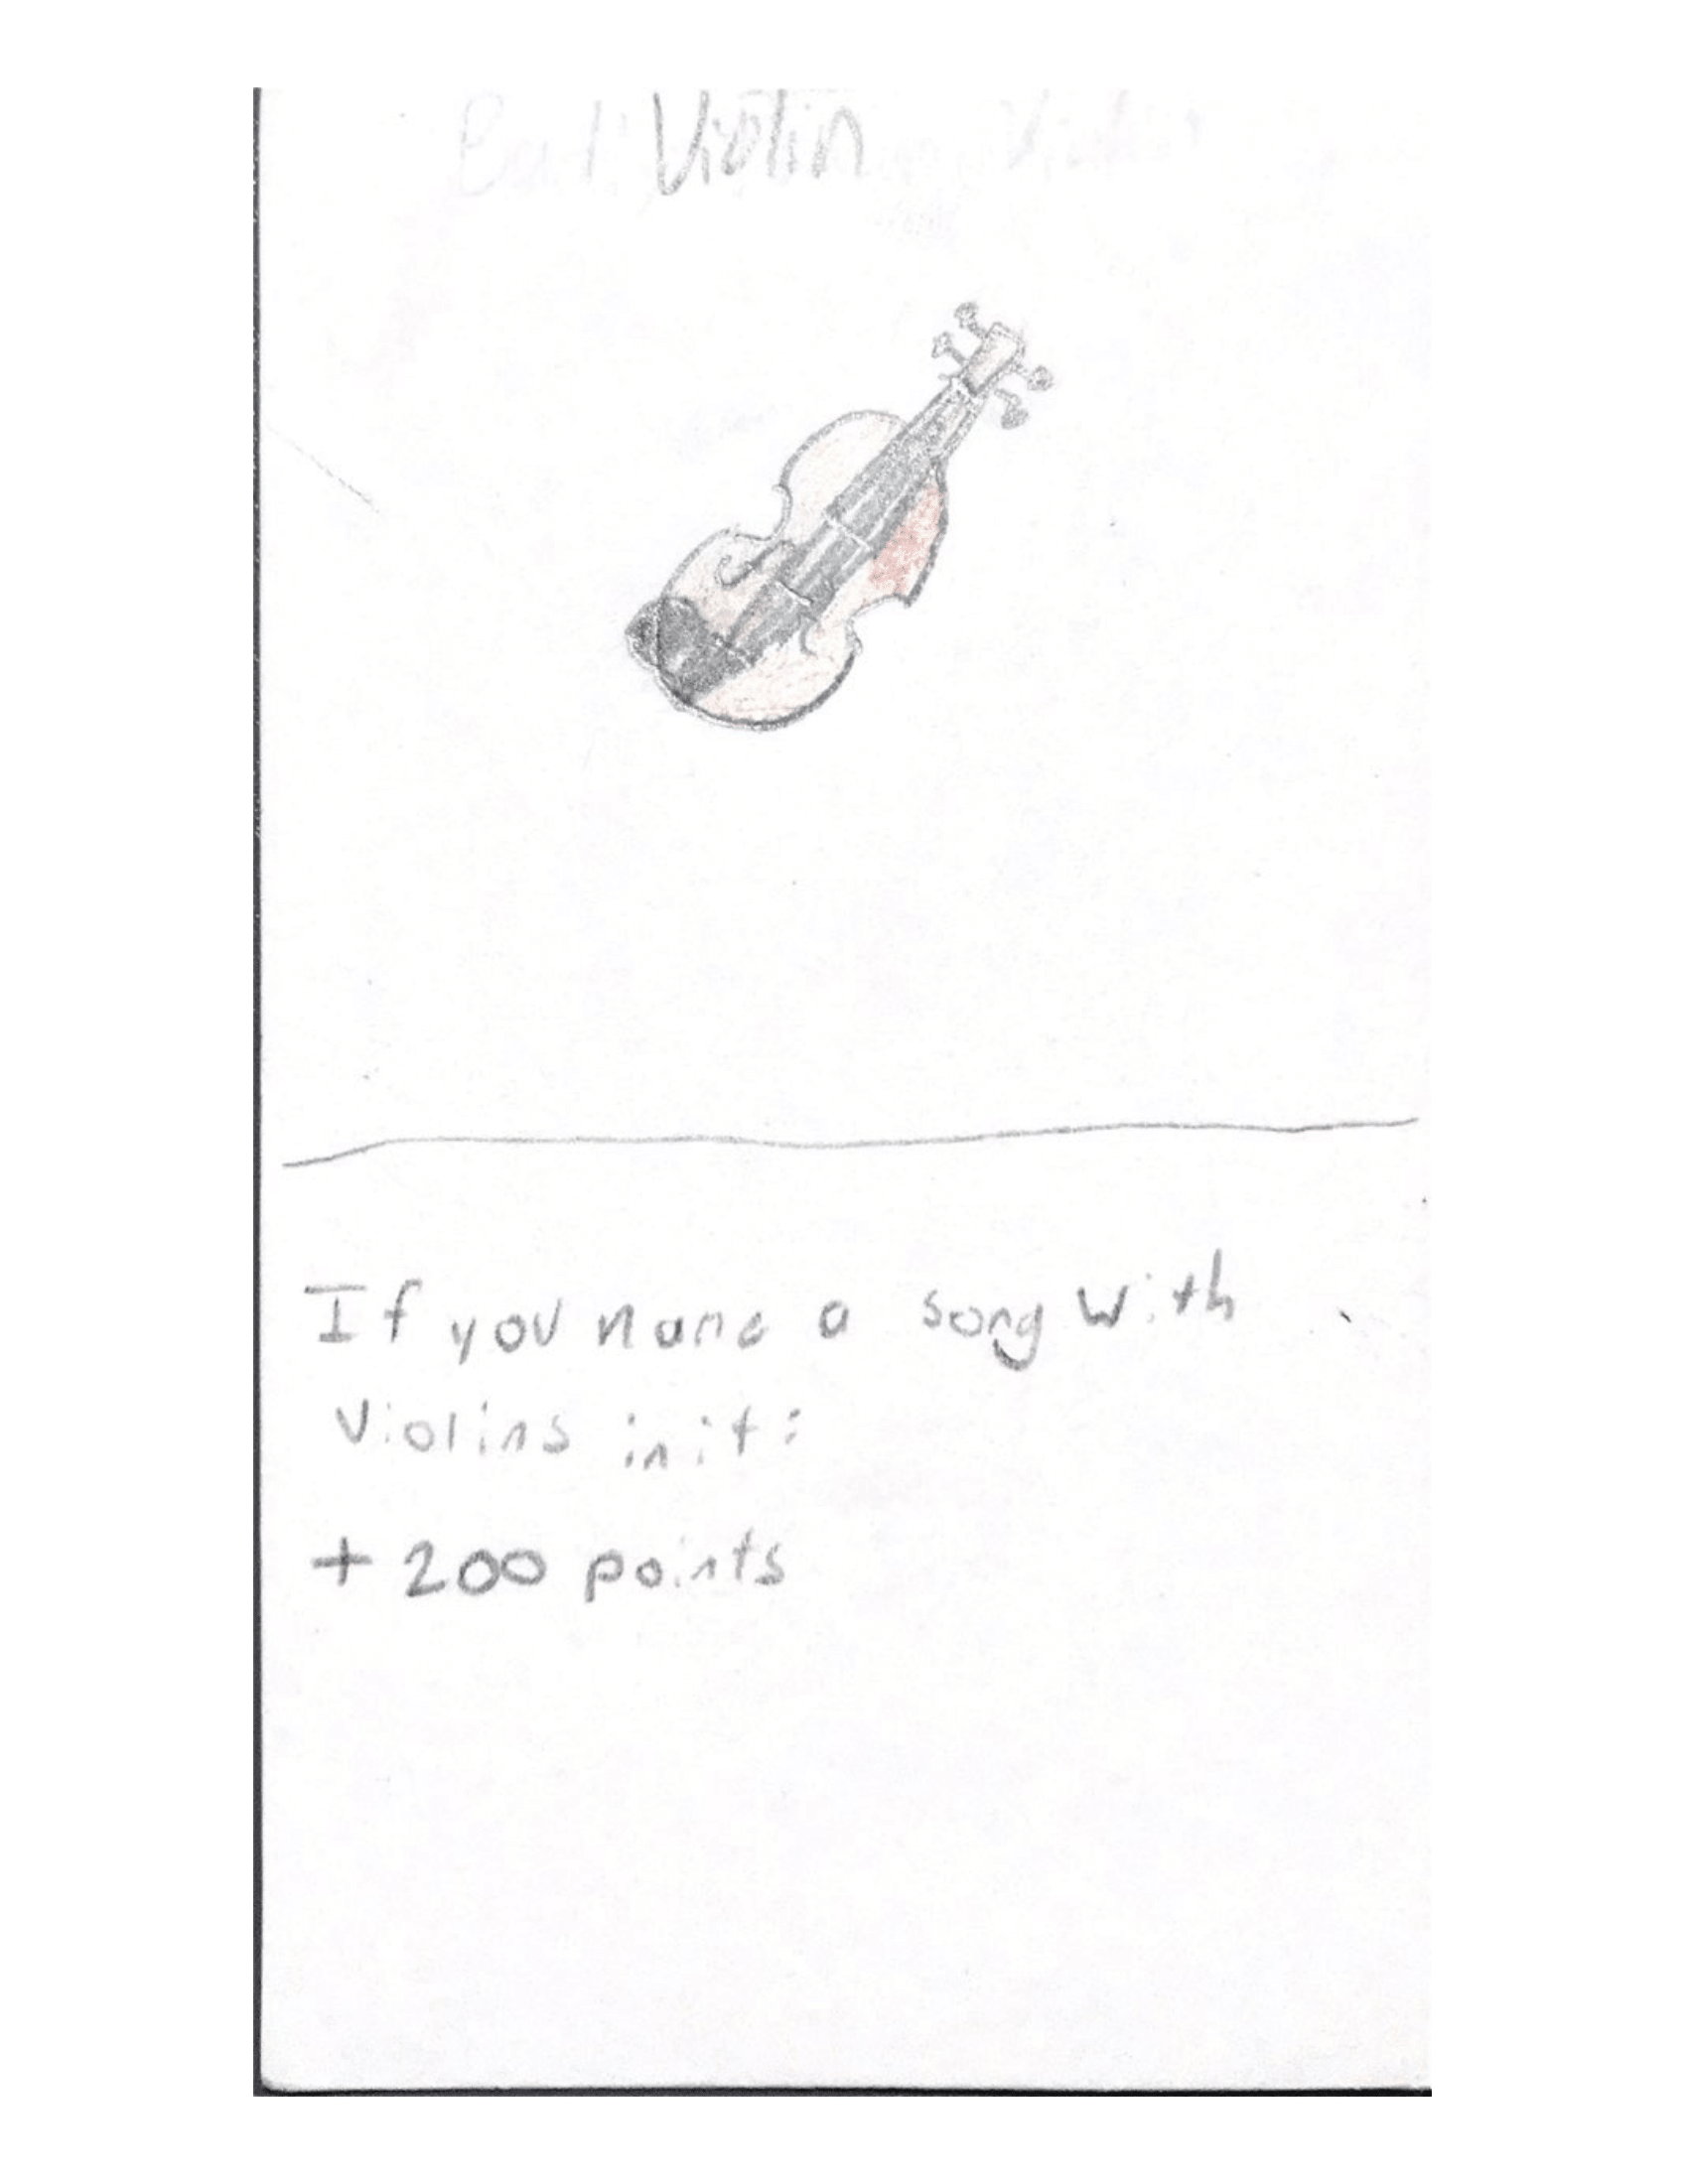 Violin
If you name a song with
violins in it:
+ 200 points